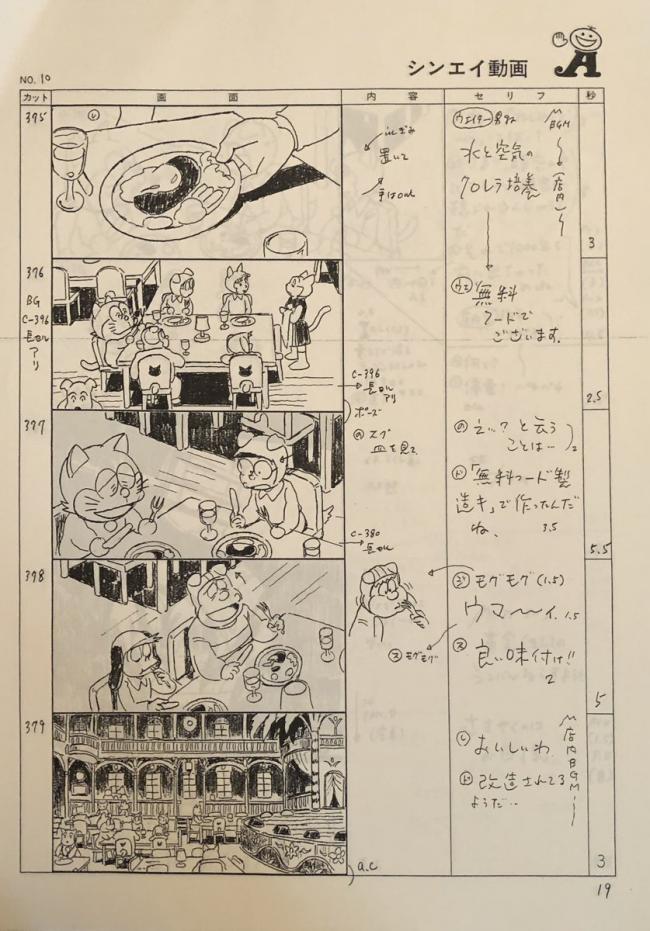 シンエイ動画
NO. 10
カット 画面 内容 セリフ 秒
375
置いて
ウエイター
BGM
水と空気の
クロレラ培養
(店内)
3
376
BG
C-396
長セル
アリ
C-396
長セル
アリ
ウエ
無料
フードで
ございます。
2.5
377
ポーズ
の スグ
皿を見る
C-380
長セル
の えっ?と云う
ことは…
2
ド 「無料フード製
造キ」で作ったんだ
ね、 3.5
5.5
378
ス モグモグ
ジ モグモグ(1.5)
ウマ〜〜イ. 1.5
ス 良い味付け!!
2
5
379
a.c
店内BGM
し おいしいわ
ド 改造されてる
ようだ…
3
19